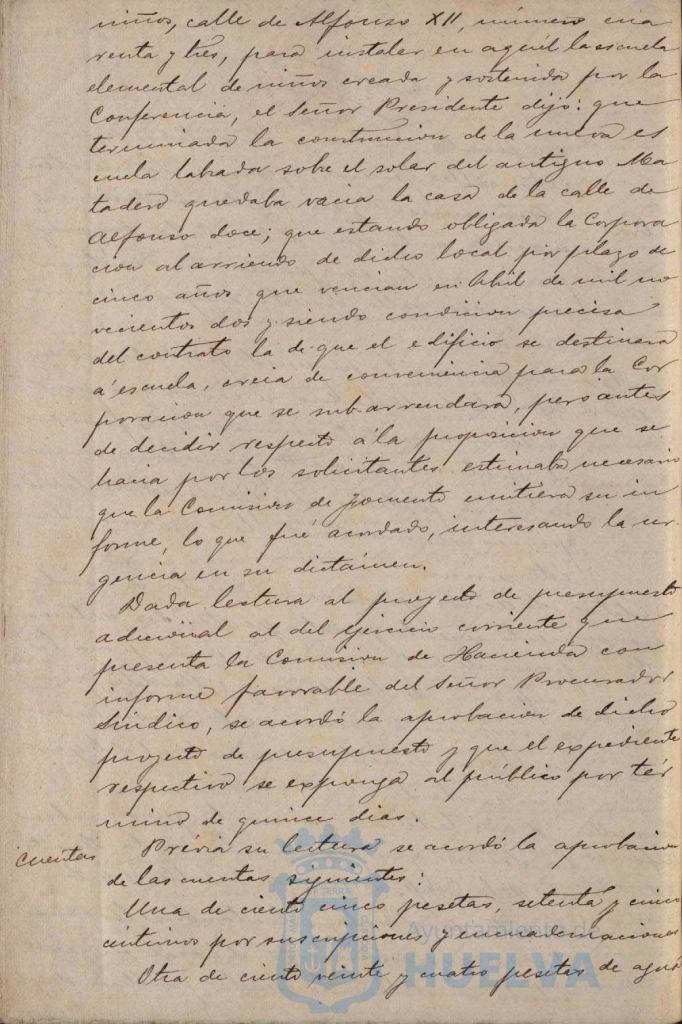 niños, calle de Alfonso XII, número cua
renta y tres, para instalar en aquel la escuela
elemental de niños creada y sostenida por la
Conferencia, el Señor Presidente dijo: que
terminada la construccion de la nueva es
cuela labrada sobre el solar del antiguo Ma
tadero quedaba vacia la casa de la calle de
Alfonso doce; que estando obligada la Corpora
cion al arriendo de dicho local por plazo de
cinco años que vencian en Abril de mil no
vecientos dos y siendo condicion precisa
del contrato la de que el edificio se destinara
a escuela, creia de conveniencia para la Cor
poracion que se sub-arrendara, pero antes
de decidir respecto á la proposicion que se
hacia por los solicitantes estimaba necesario
que la Comision de Fomento emitiera su in
forme, lo que fué acordado, interesando la ur
gencia en su dictámen.
Dada lectura al proyecto de presupuesto
adicional al del ejercicio corriente que
presenta la Comision de Hacienda con
informe favorable del Señor Procurador
Sindico, se acordó la aprobacion de dicho
proyecto de presupuesto y que el expediente
respectivo se exponga al público por tér
mino de quince dias.
Cuentas
Prévia su lectura se acordó la aprobacion
de las cuentas siguientes:
Una de ciento cinco pesetas, setenta y cinco
céntimos por suscripciones y encuadernaciones
Otra de ciento veinte y cuatro pesetas de
Ayuntamiento de
HUELVA